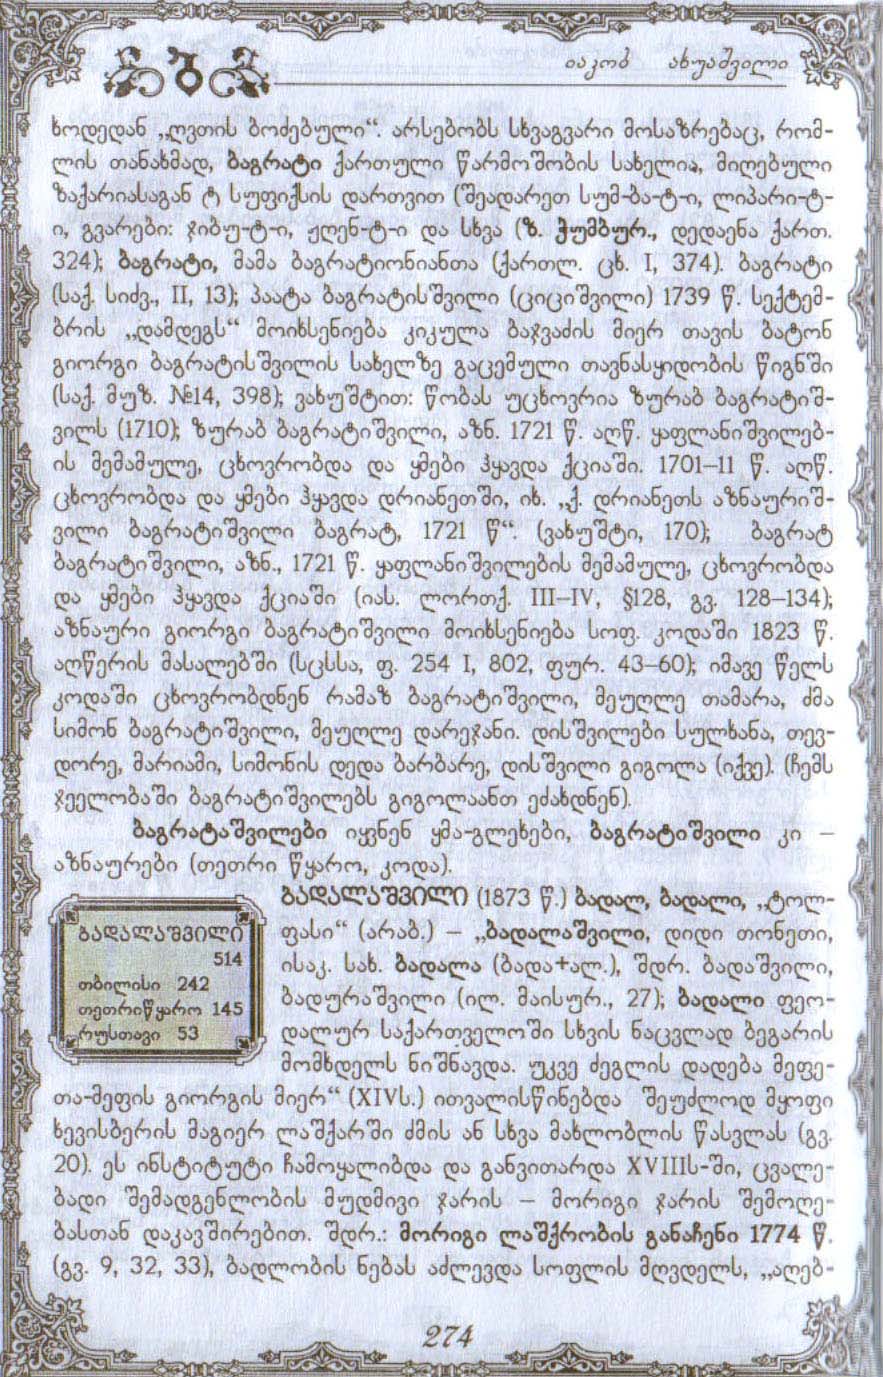 იაკობ ახუაშვილი
ხოდედან „ღვთის ბოძებული“. არსებობს სხვაგვარი მოსაზრებაც, რომ-
ლის თანახმად, ბაგრატი ქართული წარმოშობის სახელია, მიღებული
ზაქარიასაგან ტ სუფიქსის დართვით (შეადარეთ სუმ-ბა-ტ-ი, ლიპარი-ტ-
ი, გვარები: ჯიბუ-ტ-ი, ჟღენ-ტ-ი და სხვა (ზ. ჭუმბურ., დედაენა ქართ.
324); ბაგრატი, მამა ბაგრატიონიანთა (ქართლ. ცხ. I, 374). ბაგრატი
(საქ. სიძვ., II, 13); პაატა ბაგრატისშვილი (ციციშვილი) 1739 წ. სექტემ-
ბრის „დამდეგს“ მოიხსენიება კიკულა ბაჯვაძის მიერ თავის ბატონ
გიორგი ბაგრატისშვილის სახელზე გაცემული თავნასყიდობის წიგნში
(საქ. მუზ. №14, 398); ვახუშტით: წობას უცხოვრია ზურაბ ბაგრატიშ-
ვილს (1710); ზურაბ ბაგრატიშვილი, აზნ. 1721 წ. აღწ. ყაფლანიშვილებ-
ის მემამულე, ცხოვრობდა და ყმები ჰყავდა ქციაში. 1701–11 წ. აღწ.
ცხოვრობდა და ყმები ჰყავდა დრიანეთში, იხ. „ქ. დრიანეთს აზნაურიშ-
ვილი ბაგრატიშვილი ბაგრატ, 1721 წ“. (ვახუშტი, 170); ბაგრატ
ბაგრატიშვილი, აზნ., 1721 წ. ყაფლანიშვილების მემამულე, ცხოვრობდა
და ყმები ჰყავდა ქციაში (იას. ლორთქ. III–IV, §128, გვ. 128–134);
აზნაური გიორგი ბაგრატიშვილი მოიხსენიება სოფ. კოდაში 1823 წ.
აღწერის მასალებში (სცსსა, ფ. 254 I, 802, ფურ. 43–60); იმავე წელს
კოდაში ცხოვრობდნენ რამაზ ბაგრატიშვილი, მეუღლე თამარა, ძმა
სიმონ ბაგრატიშვილი, მეუღლე დარეჯანი. დისშვილები სულხანა, თევ-
დორე, მარიამი, სიმონის დედა ბარბარე, დისშვილი გიგოლა (იქვე). (ჩემს
ჯეელობაში ბაგრატიშვილებს გიგოლაანთ ეძახდნენ).
ბაგრატაშვილები იყვნენ ყმა-გლეხები, ბაგრატიშვილი კი –
აზნაურები (თეთრი წყარო, კოდა).
ბადალაშვილი
514
თბილისი 242
თეთრიწყარო 145
რუსთავი 53
ბადალაშვილი (1873 წ.) ბადალ, ბადალი, „ტოლ-
ფასი“ (არაბ.) – „ბადალაშვილი, დიდი თონეთი,
ისაკ. სახ. ბადალა (ბადა+ალ.), შდრ. ბადაშვილი,
ბადურაშვილი (ილ. მაისურ., 27); ბადალი ფეო-
დალურ საქართველოში სხვის ნაცვლად ბეგარის
მომხდელს ნიშნავდა. უკვე ძეგლის დადება მეფე-
თა-მეფის გიორგის მიერ“ (XIVს.) ითვალისწინებდა შეუძლოდ მყოფი
ხევისბერის მაგიერ ლაშქარში ძმის ან სხვა მახლობლის წასვლას (გვ.
20). ეს ინსტიტუტი ჩამოყალიბდა და განვითარდა XVIIIს-ში, ცვალე-
ბადი შემადგენლობის მუდმივი ჯარის – მორიგი ჯარის შემოღე-
ბასთან დაკავშირებით. შდრ.: მორიგი ლაშქრობის განაჩენი 1774 წ.
(გვ. 9, 32, 33), ბადლობის ნებას აძლევდა სოფლის მღვდელს, „აღებ-
274